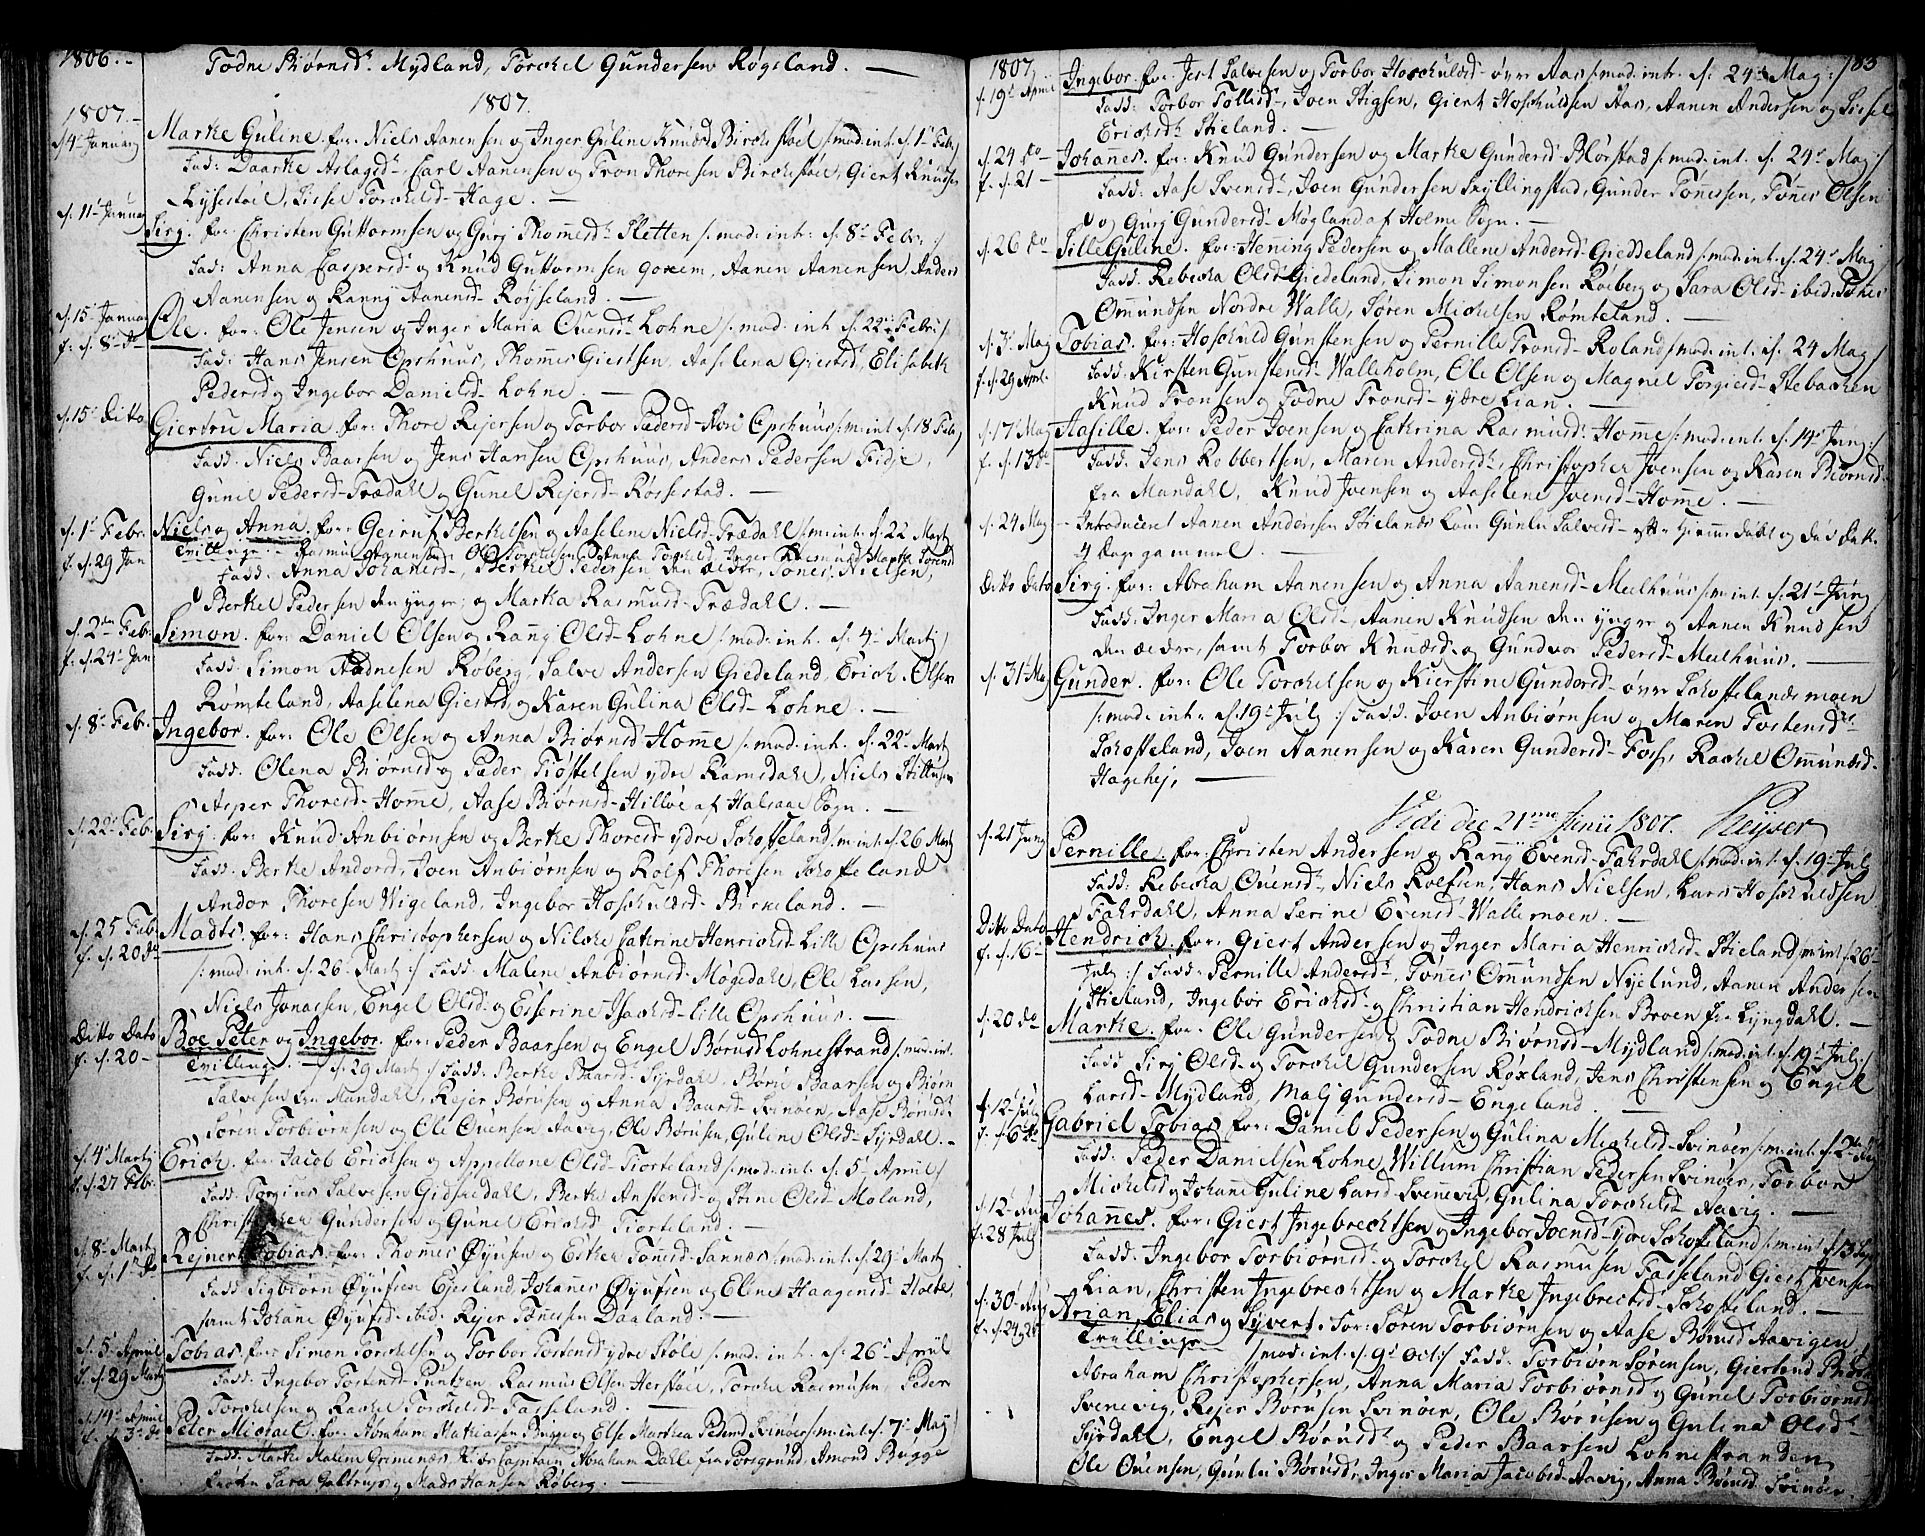 1806.
Todne Biørnsd. Mydland, Torchel Gundersen Røgeland. —
1807.
1807.
d. 4 Januarij Marke Guline. for: Niels Aanensen og Inger Guline Knudsd Birchestøel /: mod: int. d. 1 Febr
Fad: Daarke Aslagsd-, Carl Aanensen og Tron Thoresen Birchestøel, Giert Knudsen
Lysestøel, Sissel Torchelsd- Hage. —
d. 11 Januar Sirg. for: Christen Guttormsen og Gurj Thommesd- Sletten /: mod: int: d. 8 Febr. :/
Fad: Anna Caspersd- og Knud Guttormsen, Aanen Aanensen, Anders
Aanensen og Ranny Aanensd- Røysseland. —
d. 15 Januar Ole. for: Ole Jensen og Inger Maria Ouensd- Lohne /: mod: int. d. 22 Febr :/
f. d. 8 do
Fad: Hans Jensen Opshuus, Thommes Giertsen, Aaselena Giertsd, Elisabeth
Pedersd og Ingebor Danielsd- Lohne —
d. 15 Ditto Giertru Maria. for: Thore Rejersen og Torbor Pedersd- Opshuus /: m: int d. 18 Feb
Fadd. Niels Baarsen og Jens Hansen Opshuus, Anders Pedersen Fidje,
Gunil Pedersd- Trædahl og Gunel Rejersd- Røssestad. —
d. 1 Febr. Niels og Anna. for: Geiruf Berkelsen og Aaselene Nielsd- Trædahl /: m: int. d. 22 Martj
f. d. 29 Jan Tvillinge.
Fadd: Anna Johansd-, Berkel Pedersen den ældre, Tønes Nielsen,
Berkel Pedersen den yngre, og Marka Rasmusd- Trædahl. —
d. 2den Feb: Simon. for: Daniel Olsen og Rangj Olsd- Lohne /: mod: int. d. 4 Martj
f. d. 24 Jan
Fadd. Simon Aadnesen Røberg, Salve Andersen Giedeland, Erich Olsen
Rømteland, Aaselena Giertsd og Karen Gulina Olsd- Lohne. —
d. 8 Febr. Ingebor. for: Ole Olsen og Anna Biørnsd Homme /: mod: int. d. 22 Martj
Fadd: Olena Biørnsd og Peder Tiøstelsen ydre Ramsdahl, Niels
Asper Thoresd- Homme, Aase Biørnsd- Hilløe af Halsaae Sogn. —
d. 22 Feb. Sirg. for: Knud Anbiørnsen og Berke Thoresd- ydre Schofteland /: m: int. d. 26 Martj
Fadd. Berke Andorsd, Joen Anbiørnsen og Rolf Thoresen Schofteland
Andor Thoresen Wigeland, Ingebor Hoschuldsd- Birkeland. —
d. 25 Feb. Madts. for: Hans Christophersen og Nilche Cathrine Henrichsd- Lille Opshuus
f. d. 20 do
/: mod: int. d. 26 Martj :/ Fadd: Malene Anbiørnsd- Møgedahl, Ole Larsen,
Niels Jonassen, Engel Olsd- og Esserine Isachsd- Lille Opshuus. —
Ditto Dato Boe Peter og Ingebor. for: Peder Baarsen og Engel Børusd Lohnestrand /: mod: int.
f. d. 20 — Tvillinge. — d. 29 Martj :/ Fadd: Berke Baarsd- Syrdahl, Børu Baarsen og Biørn
Salvesen fra Mandahl, Rejer Børusen og Anna Baarsd- Svinøer, Aase Børusd
Søren Torbiørnsen og Ole Ouensen Aavig, Ole Børusen, Guline Olsd- Syrdahl. —
d. 4 Martj Erich. for: Jacob Erichsen og Appellone Olsd- Tiorteland /: mod: int. d. 5 April
f. d. 27 Febr.
Fadd: Torgius Salvesen Gidsledahl, Berke Anstensd- og Stine Olsd- Moland,
Christopher Gundersen og Gunel Erichsd Tiorteland. —
d. 8 Martj Rejnert Tobias. for: Thommes Øyufsen og Esther Tønesd- Sannæs /: mod: int. d. 29 Martj
f. d. 1 do
Fadd Sigbiørn Øyufsen Ejesland, Johanes Øyufsen og Elene Haagensd- Holte,
samt Johane Øyufsd- ibid: Rejer Tønesen Daaland. —
d. 5 April Tobias. for: Simon Torchelsen og Torbor Tostensd ydre Støle /: mod: int. d. 26 April
f. d. 29 Martj
Fadd: Ingebor Tostensd- Puntzen, Rasmus Olsen Herstøel, Torchel Rasmusen, Peder
Torchelsen og Rachel Torchelsd- Fasseland. —
d. 14 April Peter Michael. for: Abraham Mathiassen Bugge og Else Marthea Pedersd Svinøer /: m: int. d. 7 Maij
f. d. 3 do
Fadd: Marthe Malene Grimenæs, Hr Captain Abraham Dahlle fra Porsgrund, Amond Bugge
Frøken Sara Galtrup og Mads Hansen Røberg. —
1807
183
d. 19 April Ingebor. for: Jest Salvesen og Torbor Hoschuldsd- øvre Aas /: mod: int. d. 24 Maj :/
Fadd: Torbor Tollisd-, Joen Stigsen, Giert Hoschuldsen Aas, Aanen Andersen og Sissel
Erichsd Stieland. —
d. 24 do — Johannes. for: Knud Gundersen og Marke Gundersd- Blørstad /: mod: int. d. 24 Maj :/
f. d. 21 —
Fadd: Aase Svensd-, Joen Gundersen Skyllingstad, Gunder Tønessen, Tønes Olsen
og Gurj Gundersd- Møgland af Holme Sogn. —
d. 26 do Sille Guline. for: Hening Pedersen og Mallene Andersd- Gieddeland /: mod: int. d. 24 Maj
Fadd: Rebecka Olsd Giedeland, Simon Simonsen Røeberg og Sara Olsd- ibid:
Ommundsen Nordre Walle, Søren Michelsen Rømteland. —
d. 3 Maj Tobias. for: Hoschuld Gunstensen og Pernille Tronsd- Roland /: mod: int. d. 24 Maj
f. d. 29 April.
Fadd: Kirsten Gunstensd- Walleholm, Ole Olsen og Magnel Torgiersd- Stebachen
Knud Tronsen og Todne Tronsd- ydre Lian. —
d. 17 Maj Aasille. for: Peder Joensen og Cathrina Rasmusd- Homme /: mod: int. d. 14 Junij :/
f. d. 13 do
Fadd: Jens Robbertsen, Maren Andersd-, Christopher Ivensen og Karen Biørnsd
fra Mandahl, Knud Ivensen og Aaselene Ivensd- Homme. —
d. 24 Maj — Introduceret Aanen Andersen Stielands Kone Gunlu Salvesd- efter hiemmedøbt og død Datt:
4 dage gammel. —
Ditto Dato Sirg. for: Abraham Aanensen og Anna Aanensd- Meelhuus /: m: int. d. 21 Junj
Fadd. Inger Maria Olsd-, Aanen Knudsen den yngre og Aanen Knudsen
den ældre, samt Torbor Knudsd- og Gundvor Pedersd- Meelhuus. —
d. 31 Maj Gunder. for: Ole Torchelsen og Kierstine Gundersd- øvre Schoffelandsmoen
/: mod: int. d. 19 July :/ Fadd. Joen Anbiørnsen og Maren Tostensd-
Schofteland, Joen Aanensen og Karen Gundersd- Foss, Rachel Ommundsd-
Hagehej, —
Vidi die 21me Junii 1807. Keyser
d. 21 Junij Pernille. for: Christen Andersen og Rangj Evensd- Fahrdahl /: mod: int. d. 19 July
Fadd: Rebecka Ouensd-, Niels Rolfsen, Hans Nielsen, Lars Hoschuldsen
Fahrdahl, Anna Serine Evensd- Wallemoen. —
Ditto Dato Hendrich. for: Giert Andersen og Inger Maria Henrichsd- Stieland /: m: int d. 26
f. d. 16 —
July :/ Fadd: Pernille Andersd-, Tønnes Ommundsen Nyelund, Aanen Andersen
Stieland, Ingebor Erichsd- og Christian Hendrichsen Broen fra Lyngdahl. —
d. 20 do Marthe. for: Ole Gundersen og Todne Biørnsd- Mydland /: mod: int. d. 19 July :/
Fadd Sirg Olsd- og Torchel Gundersen Røxland, Jens Christensen og Engel
Larsd- Mydland, Malj Gundersd- Engeland. —
d. 12 July Gabriel Tobias. for: Daniel Pedersen og Gulina Michelsd- Svinøer /: m: int. d. 2
f. d. 6 do
Fadd: Peder Danielsen Lohne, Willum Christian Pedersen Svinøer, Torbor
Michelsd og Johane Guline Larsd- Svennevig, Gulina Torchelsd- Aavig. —
d. 12 Aug Johannes. for: Giert Ingebrechtsen og Ingebor Joensd- ydre Schofteland /: m: int. d. 13
f. 28 July
Fadd: Ingebor Torbiørnsd- og Torchel Rasmusen Fasseland, Giert Ivensen
Lian, Christen Ingebrechtsen og Marthe Ingebrectsd- Schofteland. —
d. 30 Aug Arian Elias og Syvert. for: Søren Torbiørnsen og Aase Børusd Aavigen
f. d. 24 og 26 Tvillinge /: mod: int. d. 9 Oct :/ Fadd: Torbiørn Sørensen, Gierlund
Abraham Christophersen, Anna Maria Torbiørnsd og Gunel Torbiørnsd
Svenevig, Rejer Børusen Svinøer, Ole Børusen og Gulina Olsd-
Syrdahl, Engel Børusd- og Peder Baarsen Lohnestranden,
Ole Ouensen, Gunlu Børusd-, Inger Maria Jacobsd- Aavig, Anna Børusd Svinøer.